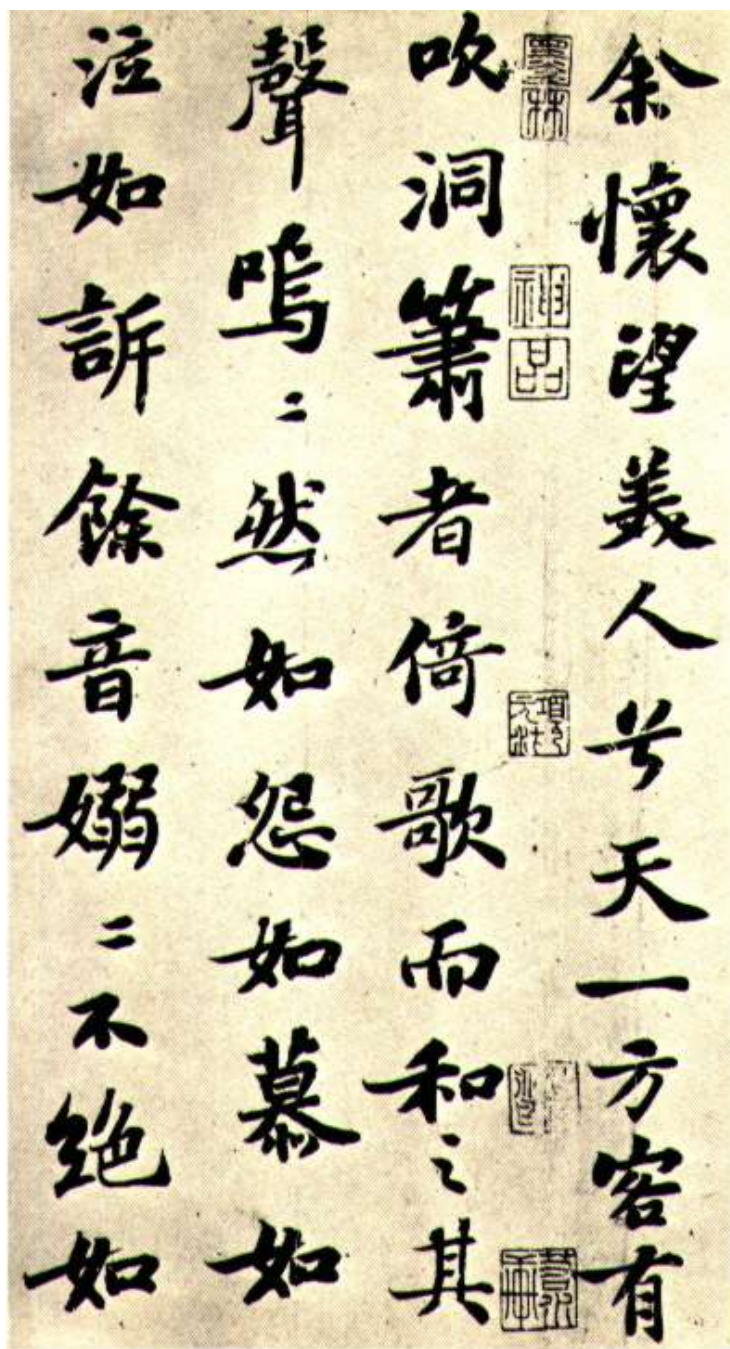 余懷望美人兮天一方客有
墨林
神品
吹洞簫者倚歌而和之其
聲嗚〻然如怨如慕如
泣如訴餘音嫋〻不絕如